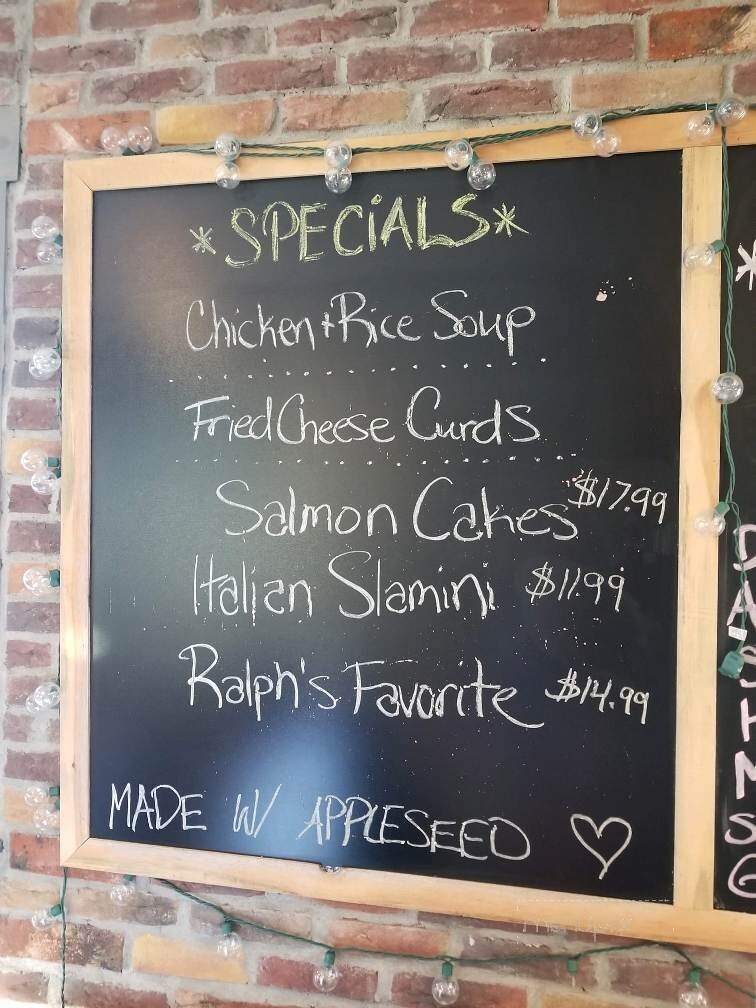 *SPECiALS*
Chicken + Rice Soup
Fried Cheese Curds
Salmon Cakes $17.99
Italian Slamini $11.99
Ralph's Favorite $14.99
MADE W/ APPLESEED ♡